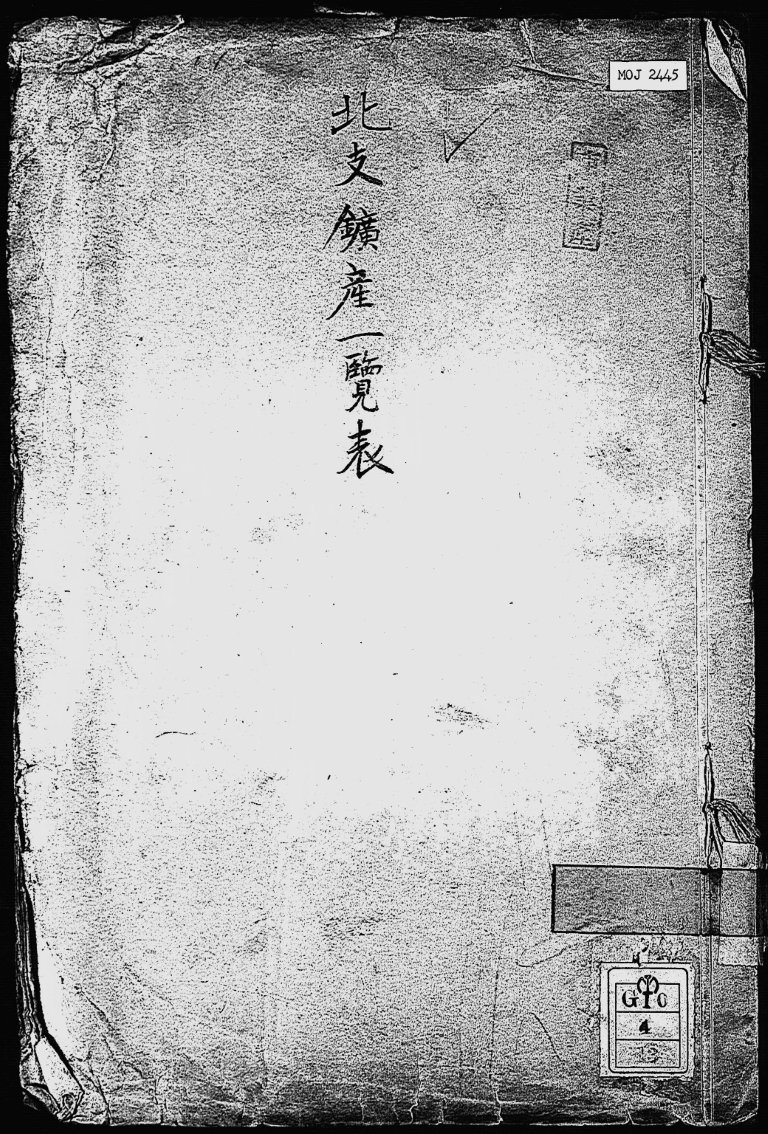 MOJ 2445
北支鑛産一覽表
G10
4
13